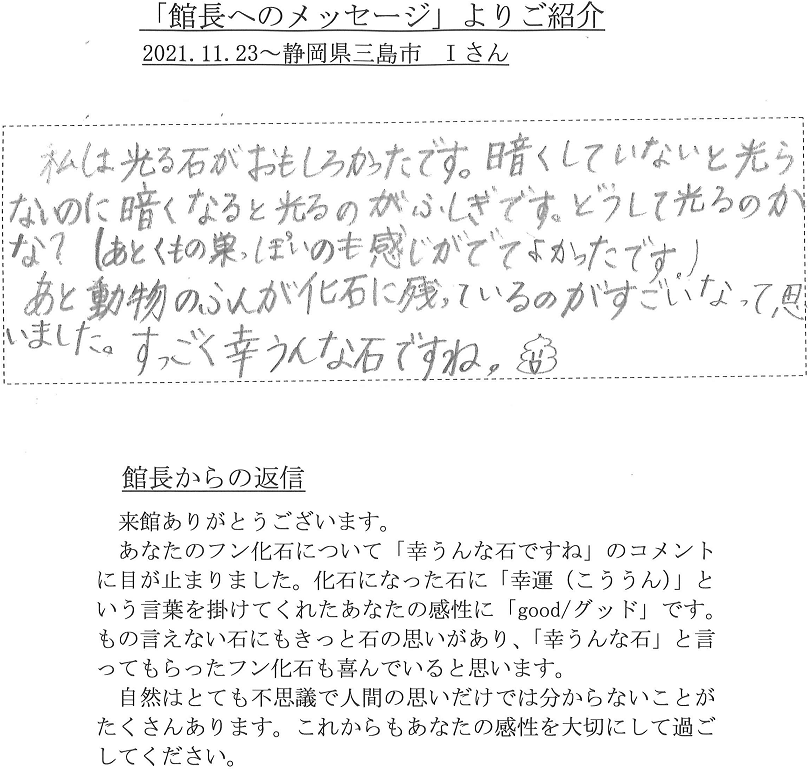 「館長へのメッセージ」よりご紹介
2021.11.23～静岡県三島市　Ｉさん
私は光る石がおもしろかったです。暗くしていないと光ら
ないのに暗くなると光るのがふしぎです。どうして光るのか
な？（あとくもの巣っぽいのも感じがでてよかったです。）
あと動物のふんが化石に残っているのがすごいなって思
いました。すっごく幸うんな石ですね。
館長からの返信
来館ありがとうございます。
あなたのフン化石について「幸うんな石ですね」のコメント
に目が止まりました。化石になった石に「幸運（こううん）」と
いう言葉を掛けてくれたあなたの感性に「good/グッド」です。
もの言えない石にもきっと石の思いがあり、「幸うんな石」と言
ってもらったフン化石も喜んでいると思います。
自然はとても不思議で人間の思いだけでは分からないことが
たくさんあります。これからもあなたの感性を大切にして過ご
してください。